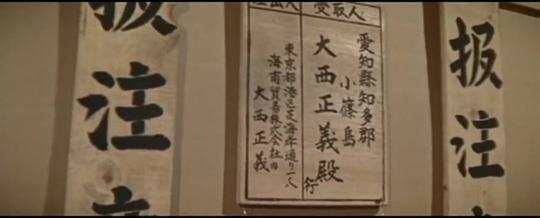 扱注
受取人
愛知縣知多郡
小篠島
大西正義殿
行
出人
東京都港区芝海岸通り一
海南貿易株式会社内
大西正義
扱注